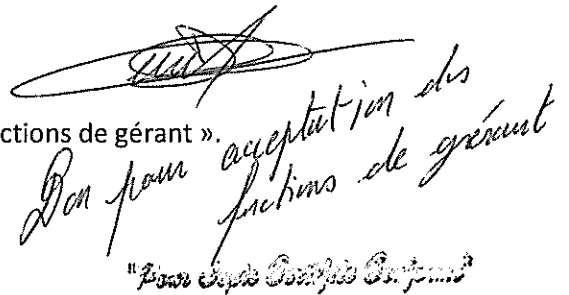 ctions de gérant ».
Bon pour acceptation des
fonctions de gérant
"Pour Copie Certifiée Conforme"